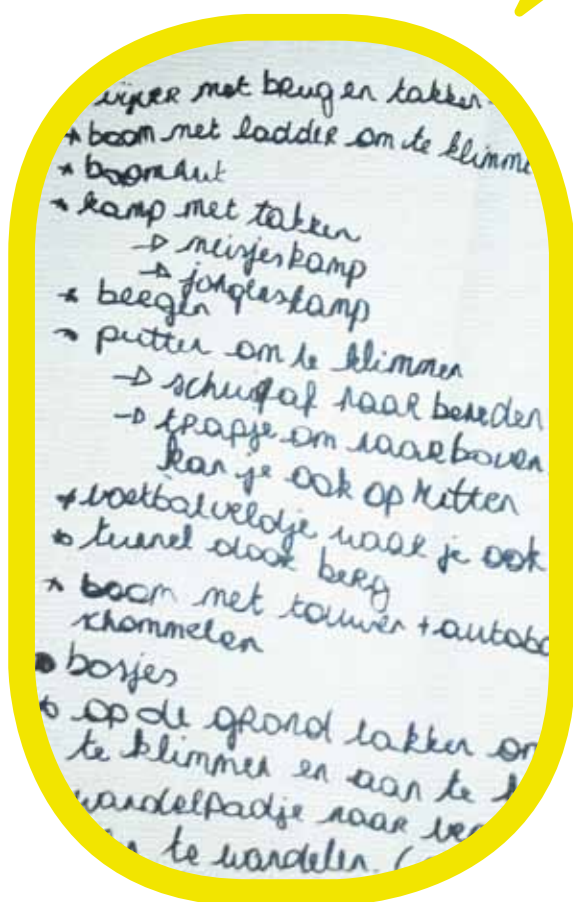 vijver met brug en takken
* boom met ladder om te klimme
* boomhut
* kamp met takken
→ meisjeskamp
→ jongeskamp
* bergen
* putten om te klimmen
→ schuifaf naar beneden
→ trapje om naar boven
kan je ook op zitten
* voetbalveldje waar je ook
* tunnel door berg
* boom met touwen + autoba
schommelen
• bosjes
* op de grond takken om
te klimmen en aan te
wandelpadje naar
te wandelen. (